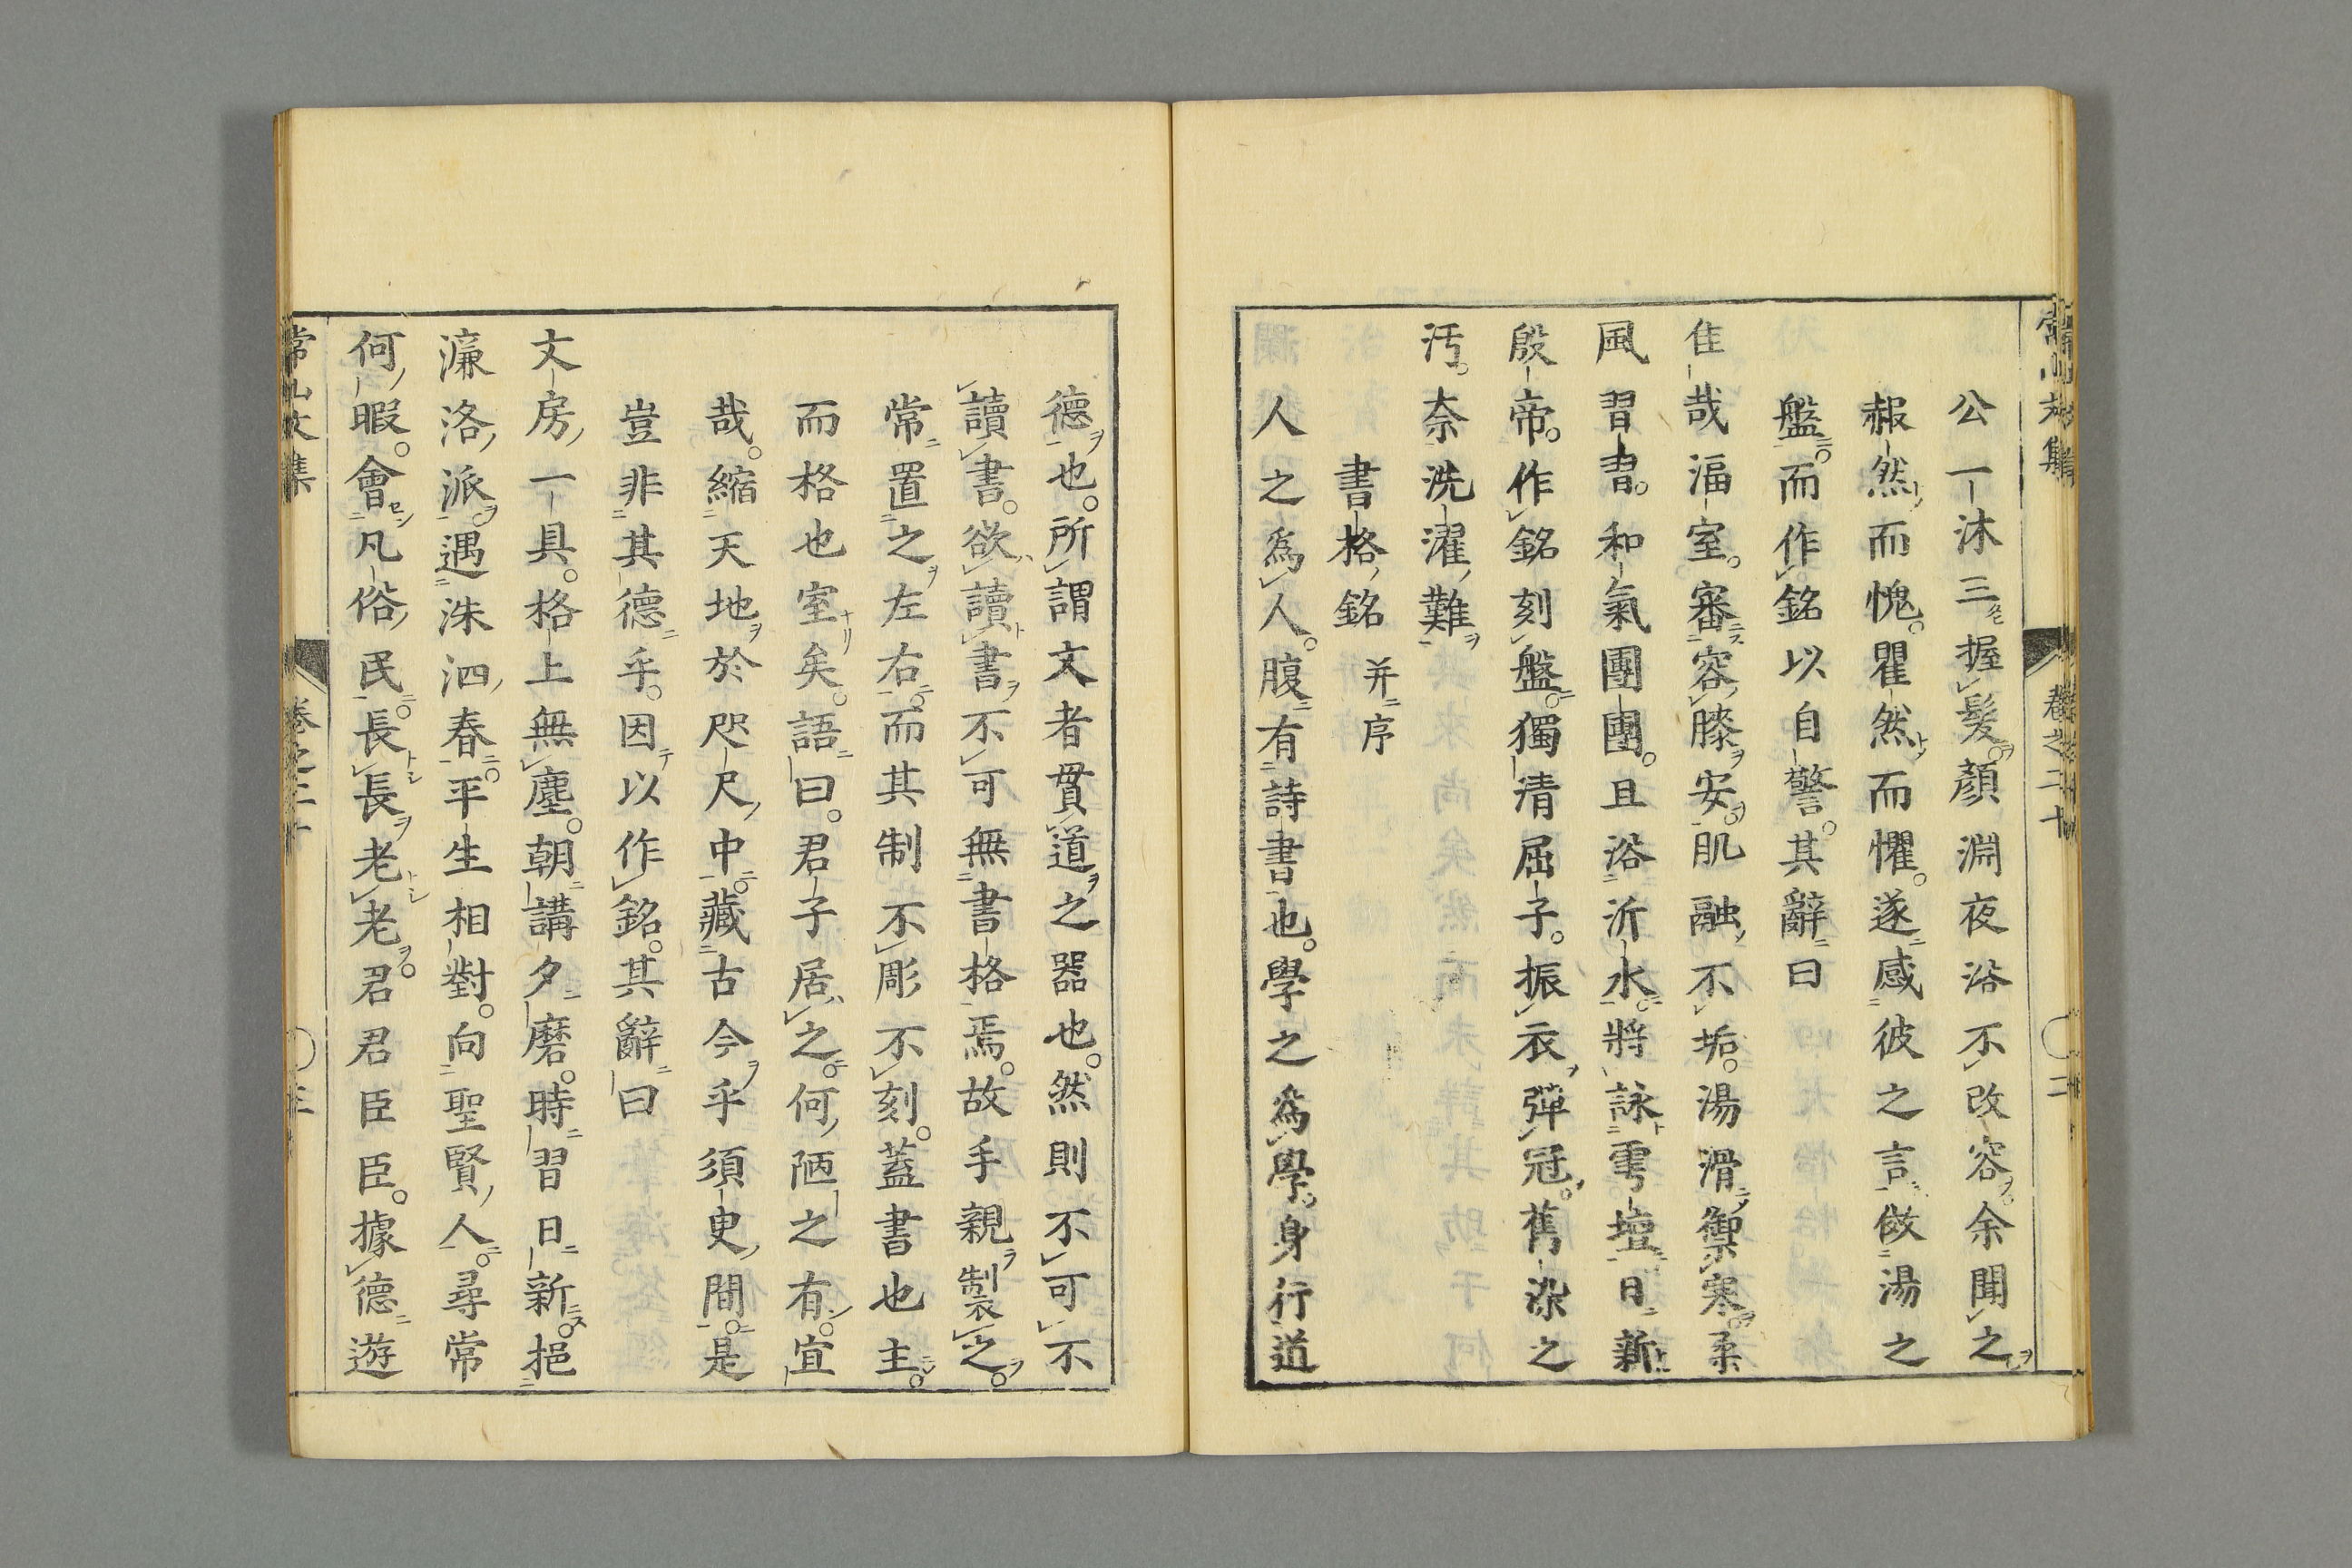 常山文集
卷之二十
二
公一沐三握髮顏淵夜浴不改容余聞之
赧然而愧瞿然而懼遂感彼之言倣湯之
盤而作銘以自警其辭曰
佳哉湢室審容膝安肌融不垢湯滑禦寒柔
風習習和氣團團且浴沂水將詠雩壇日新
殷帝作銘刻盤獨清屈子振衣彈冠舊染之
汚奈洗濯難
書格銘 并序
人之爲人腹有詩書也學之爲學身行道
德也所謂文者貫道之器也然則不可不
讀書欲讀書不可無書格焉故手親製之
常置之左右而其制不彫不刻蓋書也主
而格也室矣語曰君子居之何陋之有宜
哉縮天地於咫尺中藏古今乎須臾間是
豈非其德乎因以作銘其辭曰
文房一具格上無塵朝講夕磨時習日新挹
濂洛派遇洙泗春平生相對向聖賢人尋常
何暇會凡俗民長長老老君君臣臣據德遊
常山文集
卷之二十
三